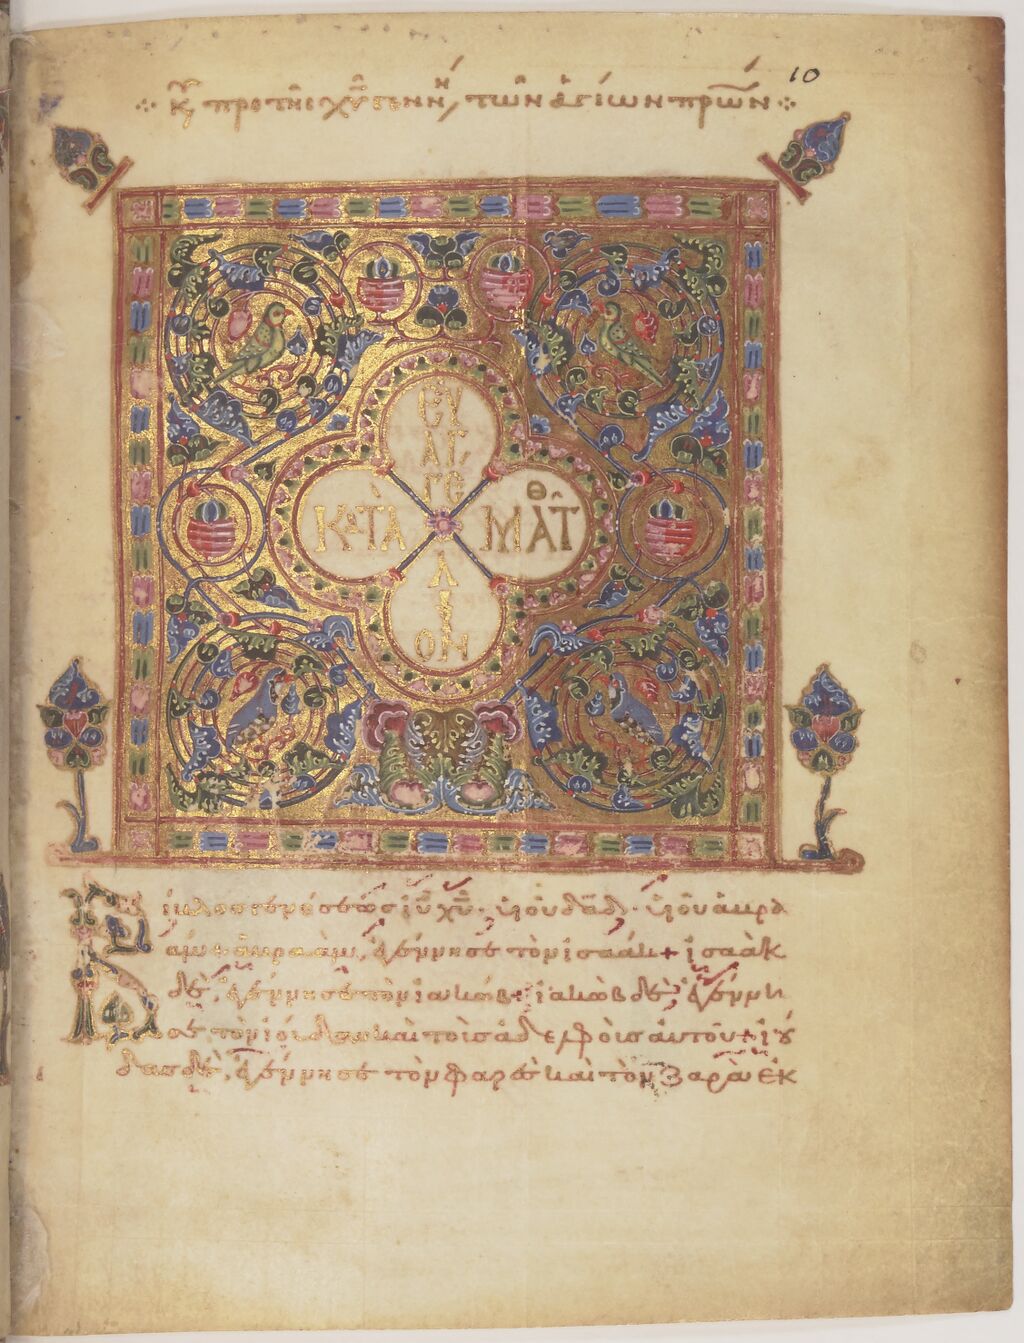 10
Κυ πρὸ τῆς χυ γενν τῶν ἁγίων πρων
ΕΥ
ΑΓ
ΓΕ
ΚΑΤᾺ ΜΑΤΘ
Λ
Ι
ΟΝ
Βίβλος γενέσεως ιυ χυ· υἱοῦ δαδ· υἱοῦ ἀβρα
ἀμ· ἀβραὰμ, ἐγέννησε τὸν ἰσαάκ + ἰσαὰκ
δὲ, ἐγέννησε τὸν ἰακώβ + ἰακὼβ δὲ, ἐγέννη
σε τὸν ἰούδαν καὶ τοὺς ἀδελφοὺς αὐτοῦ + ἰού
δας δὲ, ἐγέννησε τὸν φαρὲς καὶ τὸν ζαρὰ ἐκ